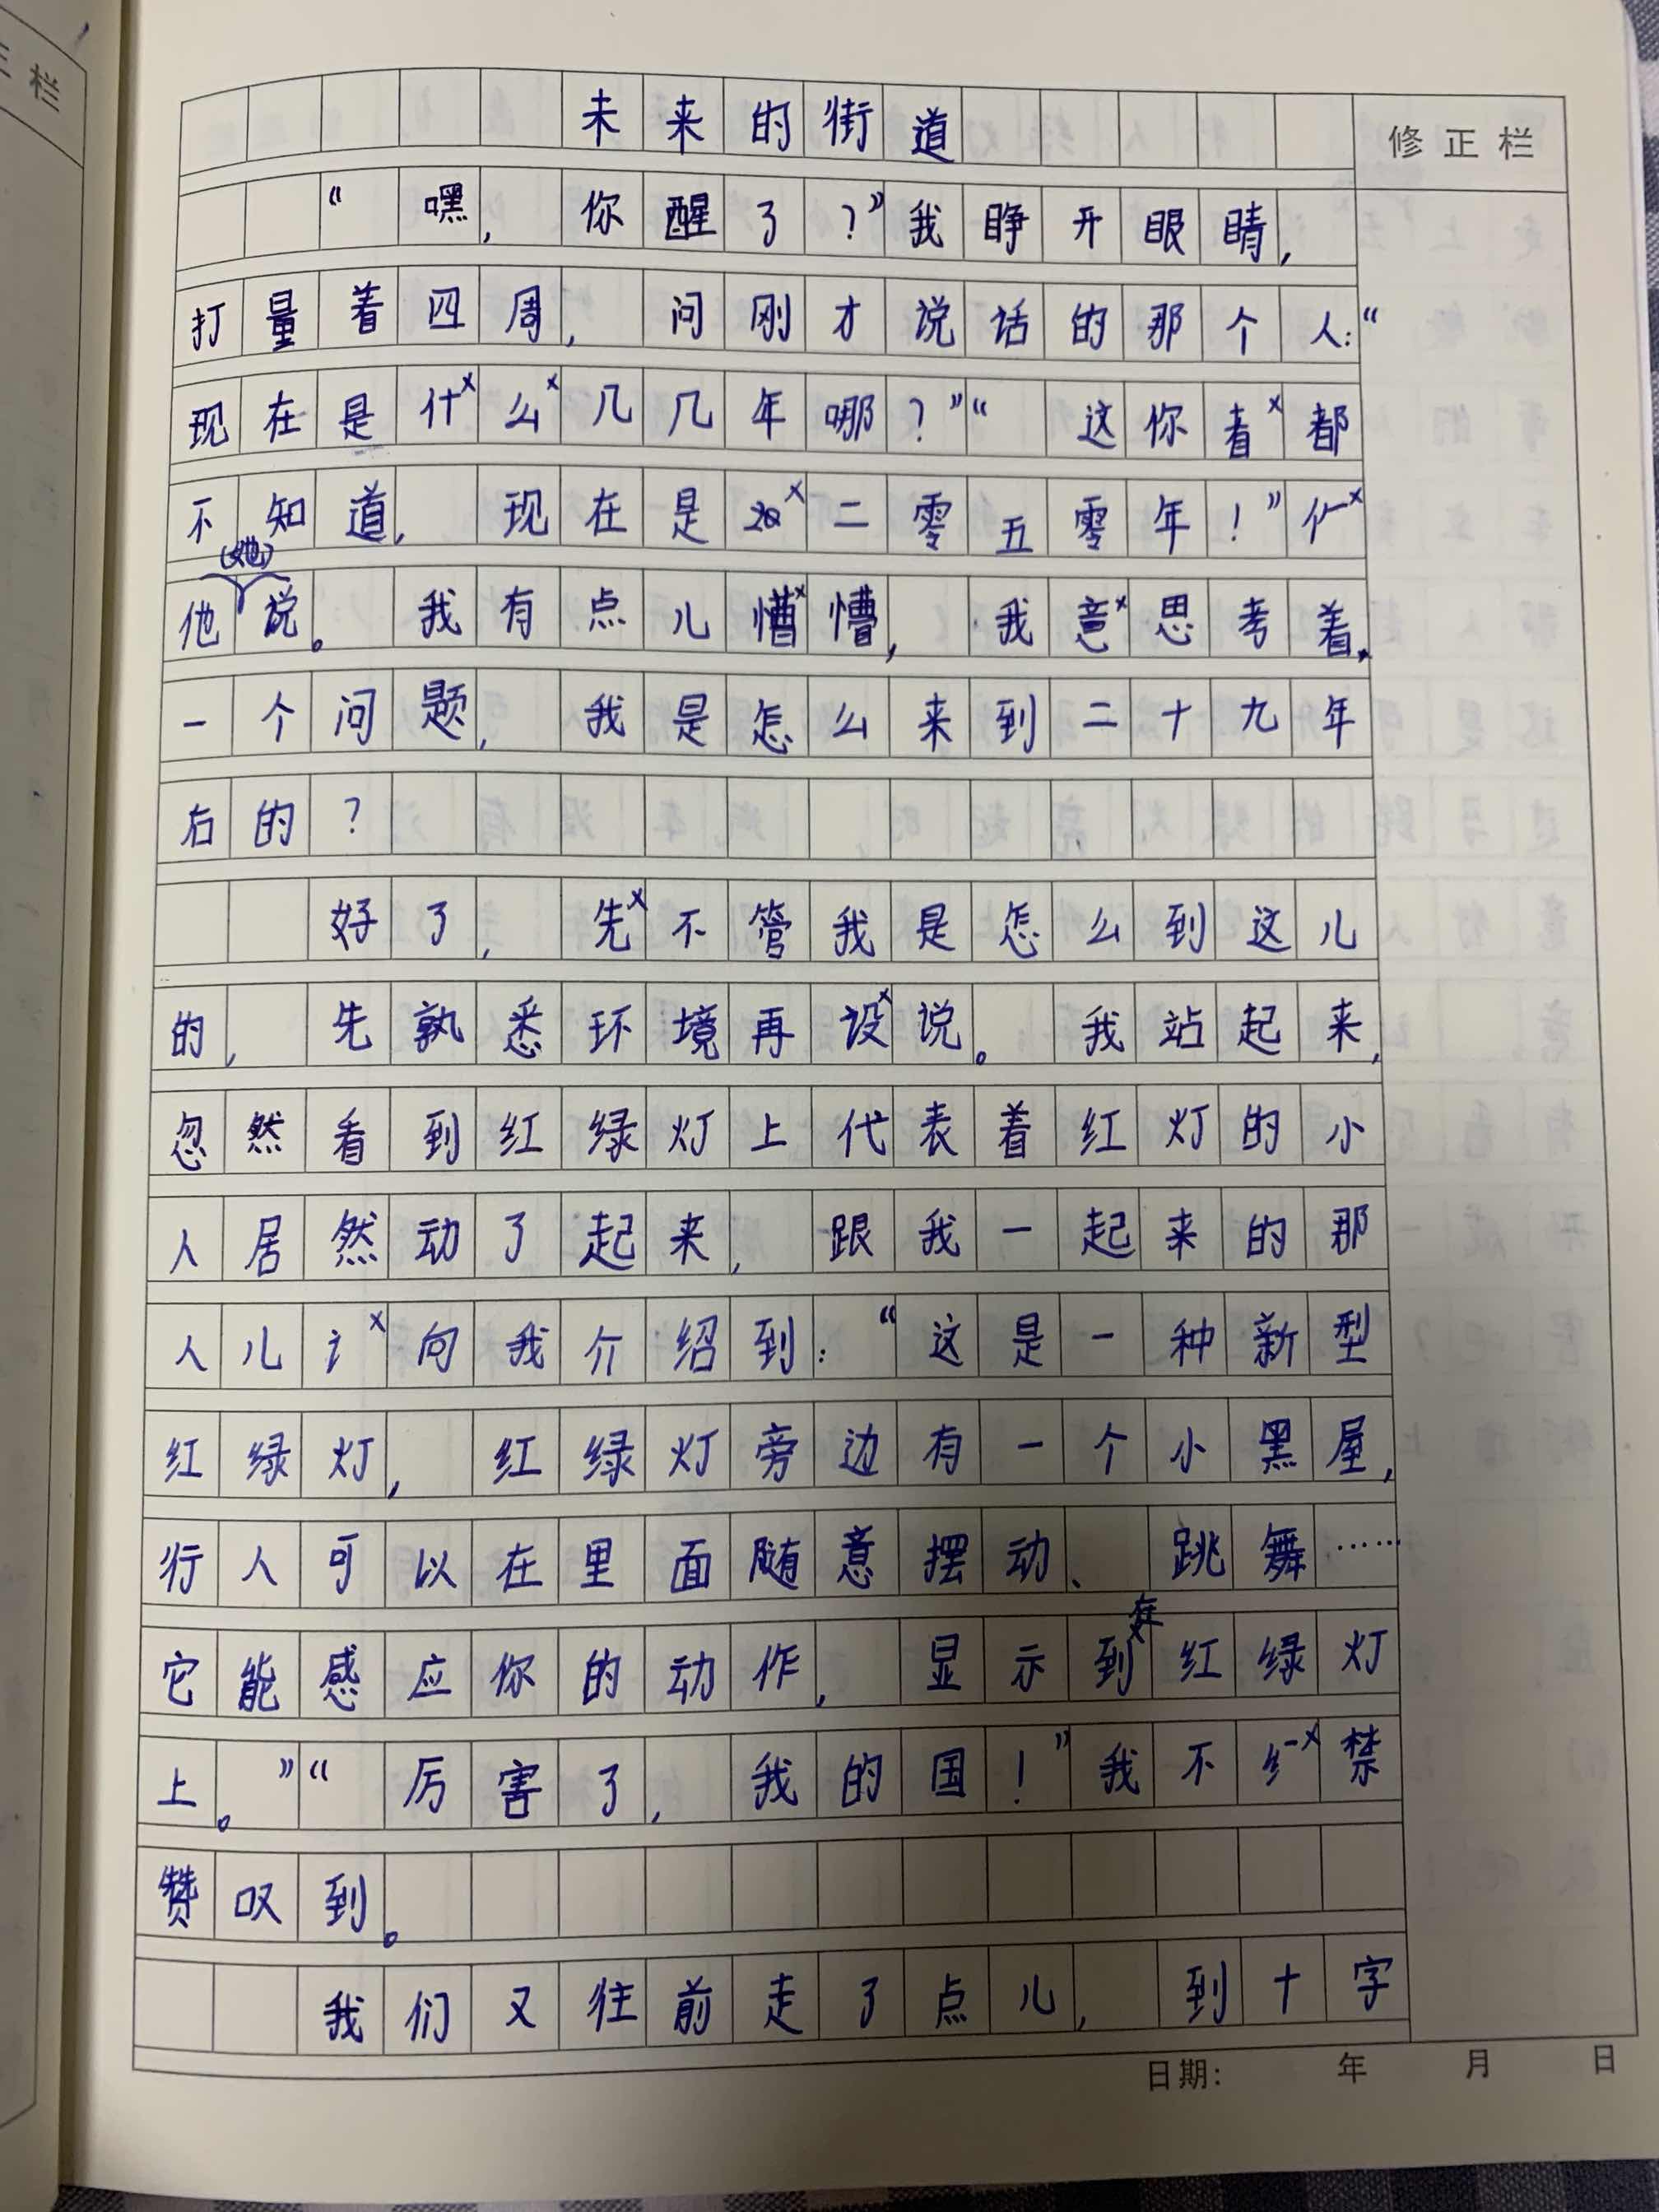 三栏
未来的街道
修正栏
“嘿，你醒了？”我睁开眼睛，
打量着四周，问刚才说话的那个人：“
现在是什么几几年哪？”“这你着都
不知道，现在是20二零五零年！”
（她）
他说。我有点儿懵懵，我意思考着，
一个问题，我是怎么来到二十九年
右的？
好了，先不管我是怎么到这儿
的，先孰悉环境再设说。我站起来，
忽然看到红绿灯上代表着红灯的小
人居然动了起来，跟我一起来的那
人儿讠向我介绍到：“这是一种新型
红绿灯，红绿灯旁边有一个小黑屋，
行人可以在里面随意摆动、跳舞……
在
它能感应你的动作，显示到红绿灯
上。”“厉害了，我的国！”我不纟禁
赞叹到。
我们又往前走了点儿，到十字
日期：年月日